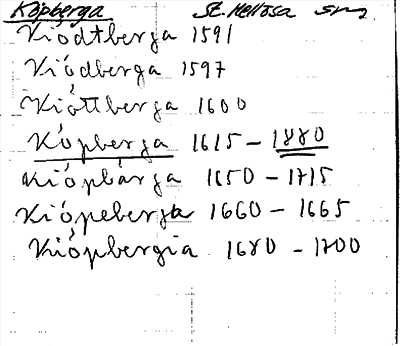 Köpberga St. Mellösa sn
Kiödtberga 1591
Kiödberga 1597
Kiöttberga 1600
Köpberga 1615 - 1880
Kiöpbärga 1650 - 1715
Kiöpeberga 1660 - 1665
Kiöpbergia 1680 - 1700